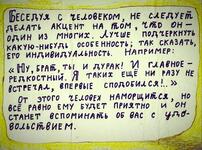 Беседуя с человеком, не следует
делать акцент на том, что он —
один из многих. Лучше подчеркнуть
какую-нибудь особенность; так сказать,
его индивидуальность. Например:
«Ну, брат, ты и дурак! И главное —
редкостный. Я таких ещё ни разу не
встречал, впервые сподобился!..»
От этого человек наморщится, но
всё равно ему будет приятно и он
станет вспоминать об вас с удо-
вольствием.